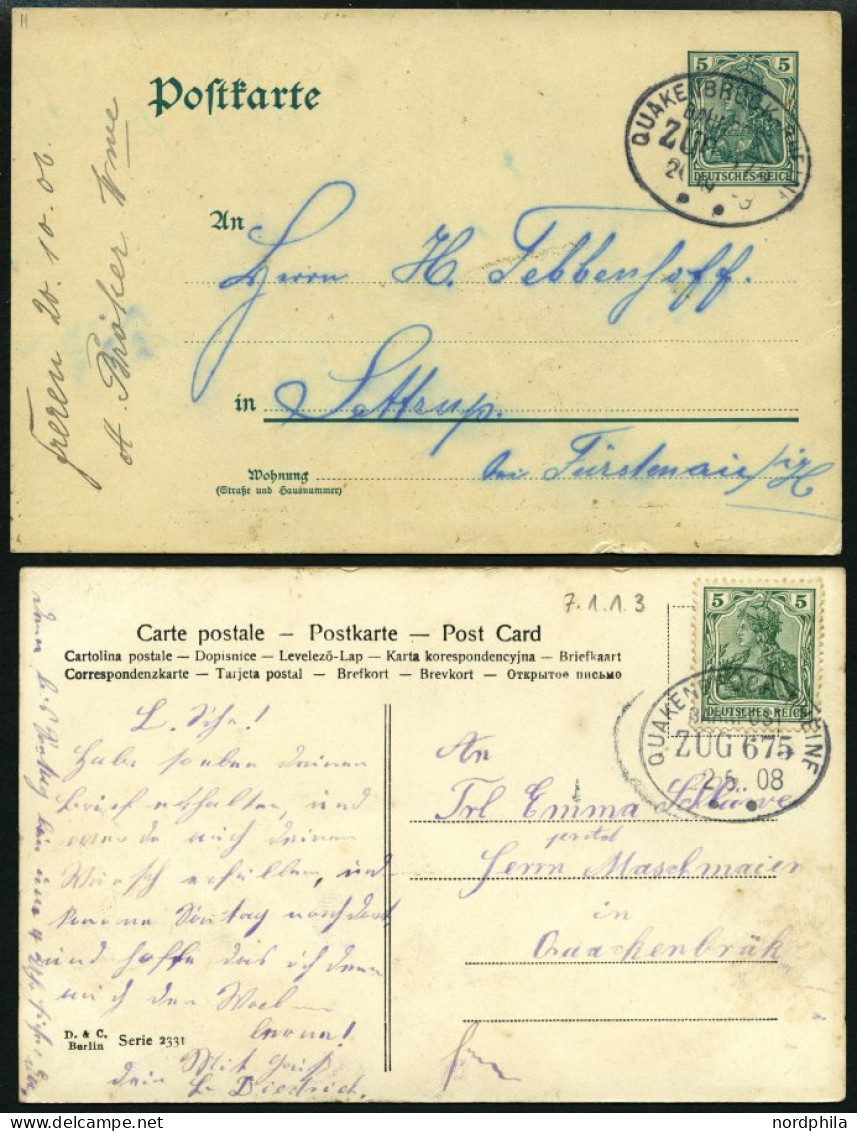 Postkarte
5 5
DEUTSCHES REICH
QUAKENBRÜCK RHEINE
ZUG
An
Herrn H. Tebbenhoff.
in Settrup.
bei Fürstenau i/H
Wohnung
(Straße und Hausnummer)
Freren 20. 10. 06.
A. Bröker Wwe
7.1.1.3
Carte postale – Postkarte – Post Card
Cartolina postale — Dopisnice — Levelező-Lap — Karta korespondencyjna — Briefkaart
Correspondenzkarte — Tarjeta postal — Brefkort — Brevkort — Открытое письмо
5 5
DEUTSCHES REICH
QUAKENBRÜCK RHEINE
BAHNPOST
ZUG 675
2 5. 08
L. Schw!
Habe soeben deinen
Brief erhalten, und
werde auch deinen
Wunsch erfüllen, und
komme Sontag nach dort,
und hoffe das ich dann
auch den
Mit Gruß
dein
Diedrich.
An
Frl Emma
Herrn Maschmaier
in
Quackenbrük
D. & C.
Berlin
Serie 2331
www.nordphila.com